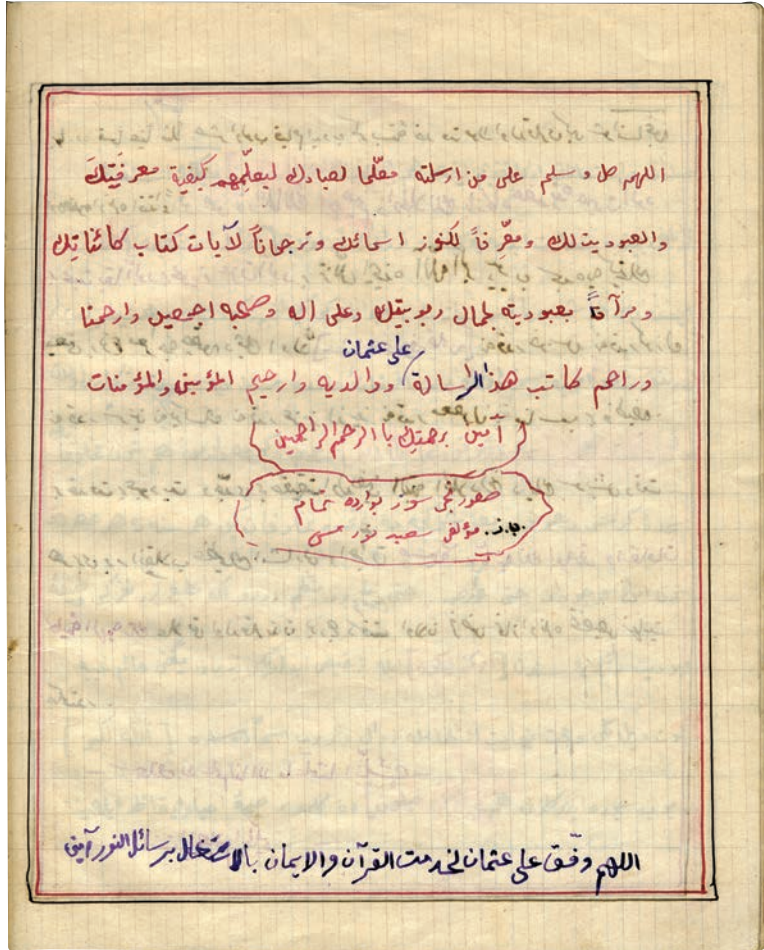 اللهم صل وسلم على من ارسلته معلّما لعبادك ليعلّمهم كيفية معرفتك
والعبوديت لك ومعرّفاً لكنوز اسمائك وترجماناً لآيات كتاب كائناتك
ومرآةً بعبوديته لجمال ربوبيتك وعلى اله وصحبه اجمعين وارحمنا
على عثمان
وراحم كاتب هذالرسالة ووالديه وارحم المؤمنين والمؤمنات
آمين برحمتك يا ارحم الراحمين
سوز بوراده تمام
مؤلفى سعيد نورسى
اللهم وفّق على عثمان لخدمت القرآن والايمان بالاشتغال برسائل النور آمين